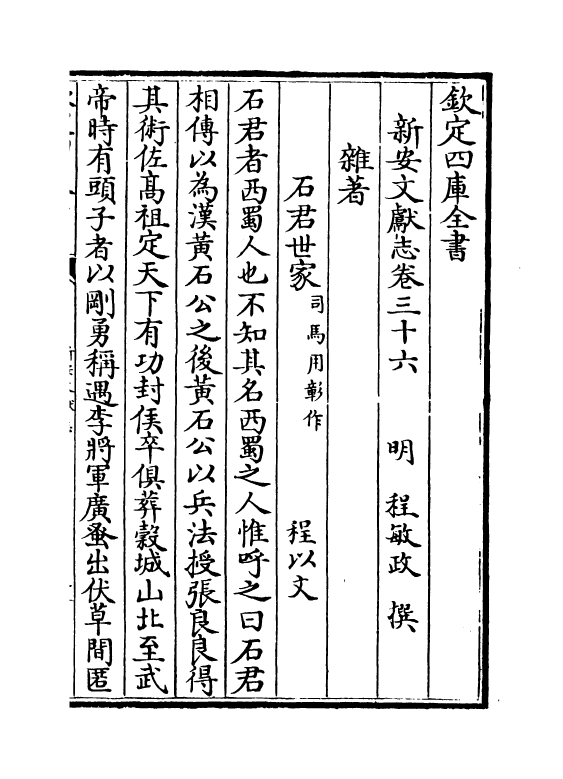 欽定四庫全書
新安文獻志卷三十六　明　程敏政　撰
雜著
石君世家司馬用彰作　程以文
石君者西蜀人也不知其名西蜀之人惟呼之曰石君
相傳以為漢黃石公之後黃石公以兵法授張良良得
其術佐高祖定天下有功封侯卒俱葬穀城山北至武
帝時有頭子者以剛勇稱遇李將軍廣蚤出伏草間匿